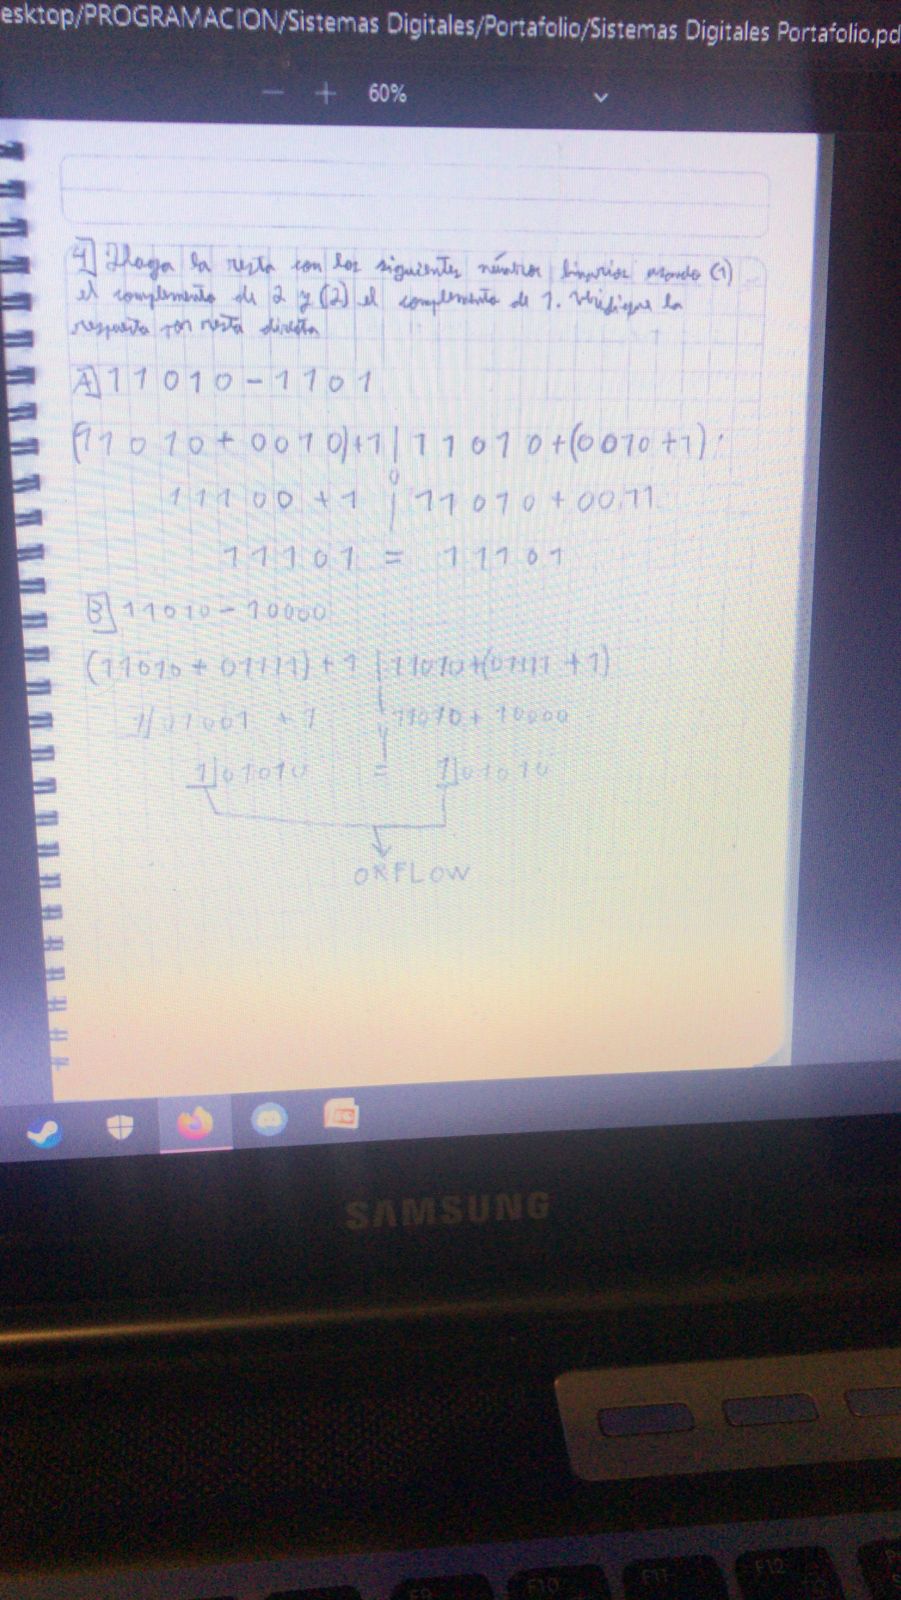 esktop/PROGRAMACION/Sistemas Digitales/Portafolio/Sistemas Digitales Portafolio.pd
− + 60%
4] Haga la resta con los siguientes números binarios usando (1)
el complemento de 2 y (2) el complemento de 1. Verifique la
respuesta con resta directa
A] 11010 - 1101
(11010 + 0010) + 1 | 11010 + (0010 + 1) :
11100 + 1 | 11010 + 0011
11101 = 11101
B] 11010 - 10000
(11010 + 01111) + 1 | 11010 + (01111 + 1)
1|01001 + 1 | 11010 + 10000
1|01010 = 1|01010
SAMSUNG
F10
F11
F12